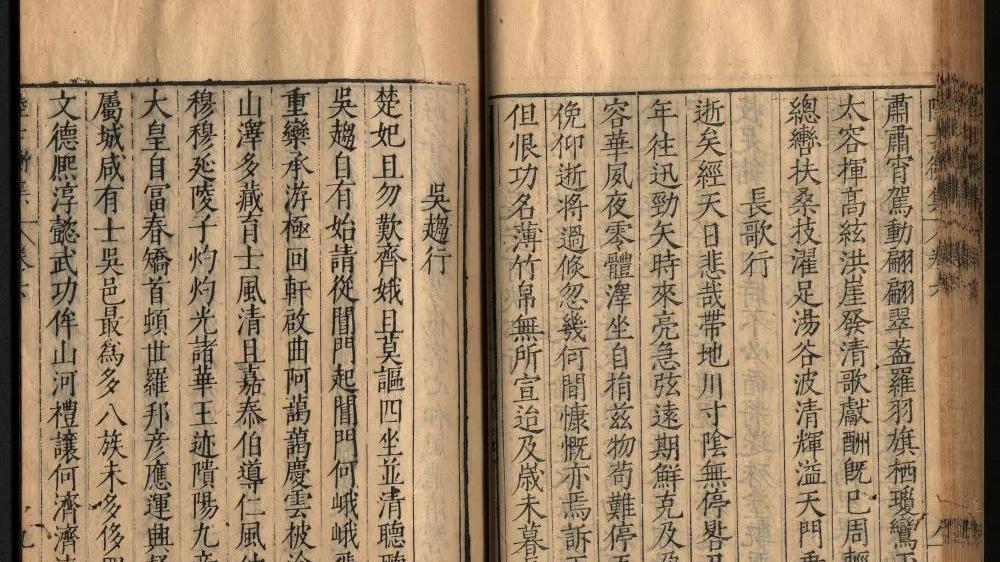 肅肅宵駕動翩翩翠蓋羅羽旗栖瓊鸞
太容揮高絃洪崖發清歌獻酬旣已周輕
總轡扶桑技濯足湯谷波清輝溢天門
長歌行
逝矣經天日悲哉帶地川寸陰無停晷
年往迅勁矢時來亮急弦遠期鮮克及
容華夙夜零體澤坐自捐茲物苟難停
俛仰逝將過倐忽幾何間慷慨亦焉訴
但恨功名薄竹帛無所宣迨及歲未暮
吳趨行
楚妃且勿歎齊娥且莫謳四坐並清聽
吳趨自有始請從閶門起閶門何峩峩
重欒承游極回軒啟曲阿藹藹慶雲被
山澤多藏育土風清且嘉泰伯導仁風
穆穆延陵子灼灼光諸華王迹隤陽九
大皇自富春矯首頓世羅邦彥應運興
屬城咸有士吳邑最爲多八族未多侈
文德熈淳懿武功侔山河禮讓何濟濟